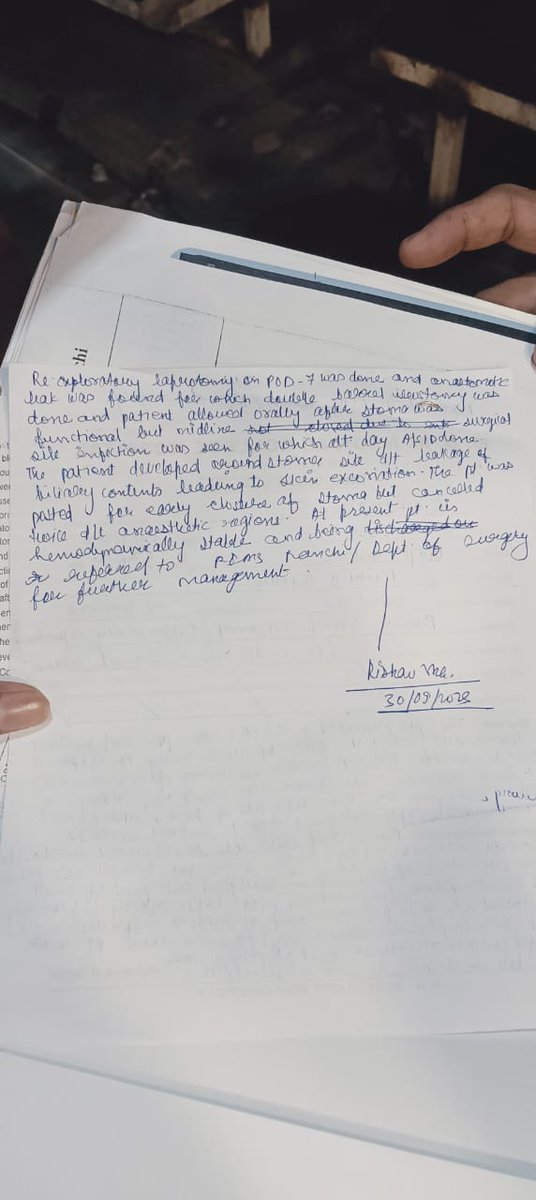 hi
Re exploratory laprotomy on POD-7 was done and anastomotic
leak was found for which double barrel ileostomy was
done and patient allowed orally after stoma was
functional but midline not closed due to surgical
site infection was seen for which alt day ASD done
The patient developed around stoma site d/t leakage of
biliary contents leading to skin excoriation. The pt was
posted for early closure of stoma but cancelled
twice d/t anaesthetic regions. At present pt. is
hemodynamically stable and being discharged on
referred to RIMS Ranchi / Dept. of surgery
for further management.
30/09/2023